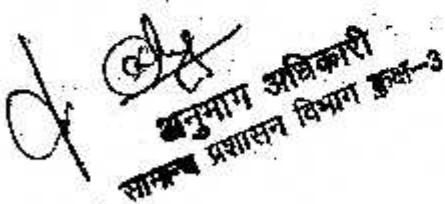 अनुभाग अधिकारी
सामान्य प्रशासन विभाग कक्ष-3